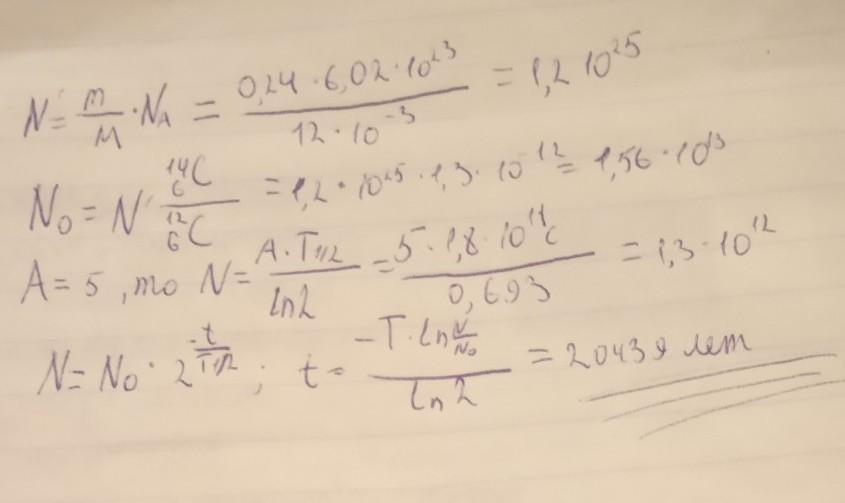 N = m/M · N_A = 0,24 · 6,02 · 10²³ / 12 · 10⁻³ = 1,2 10²⁵
N₀ = N · ¹⁴₆C / ¹²₆C = 1,2 · 10²⁵ · 1,3 · 10⁻¹² = 1,56 · 10¹³
A = 5, то N = A · T₁/₂ / ln2 = 5 · 1,8 · 10¹¹ с / 0,693 = 1,3 · 10¹²
N = N₀ · 2^(-t/T₁/₂) ; t = -T · ln N/N₀ / ln 2 = 20439 лет